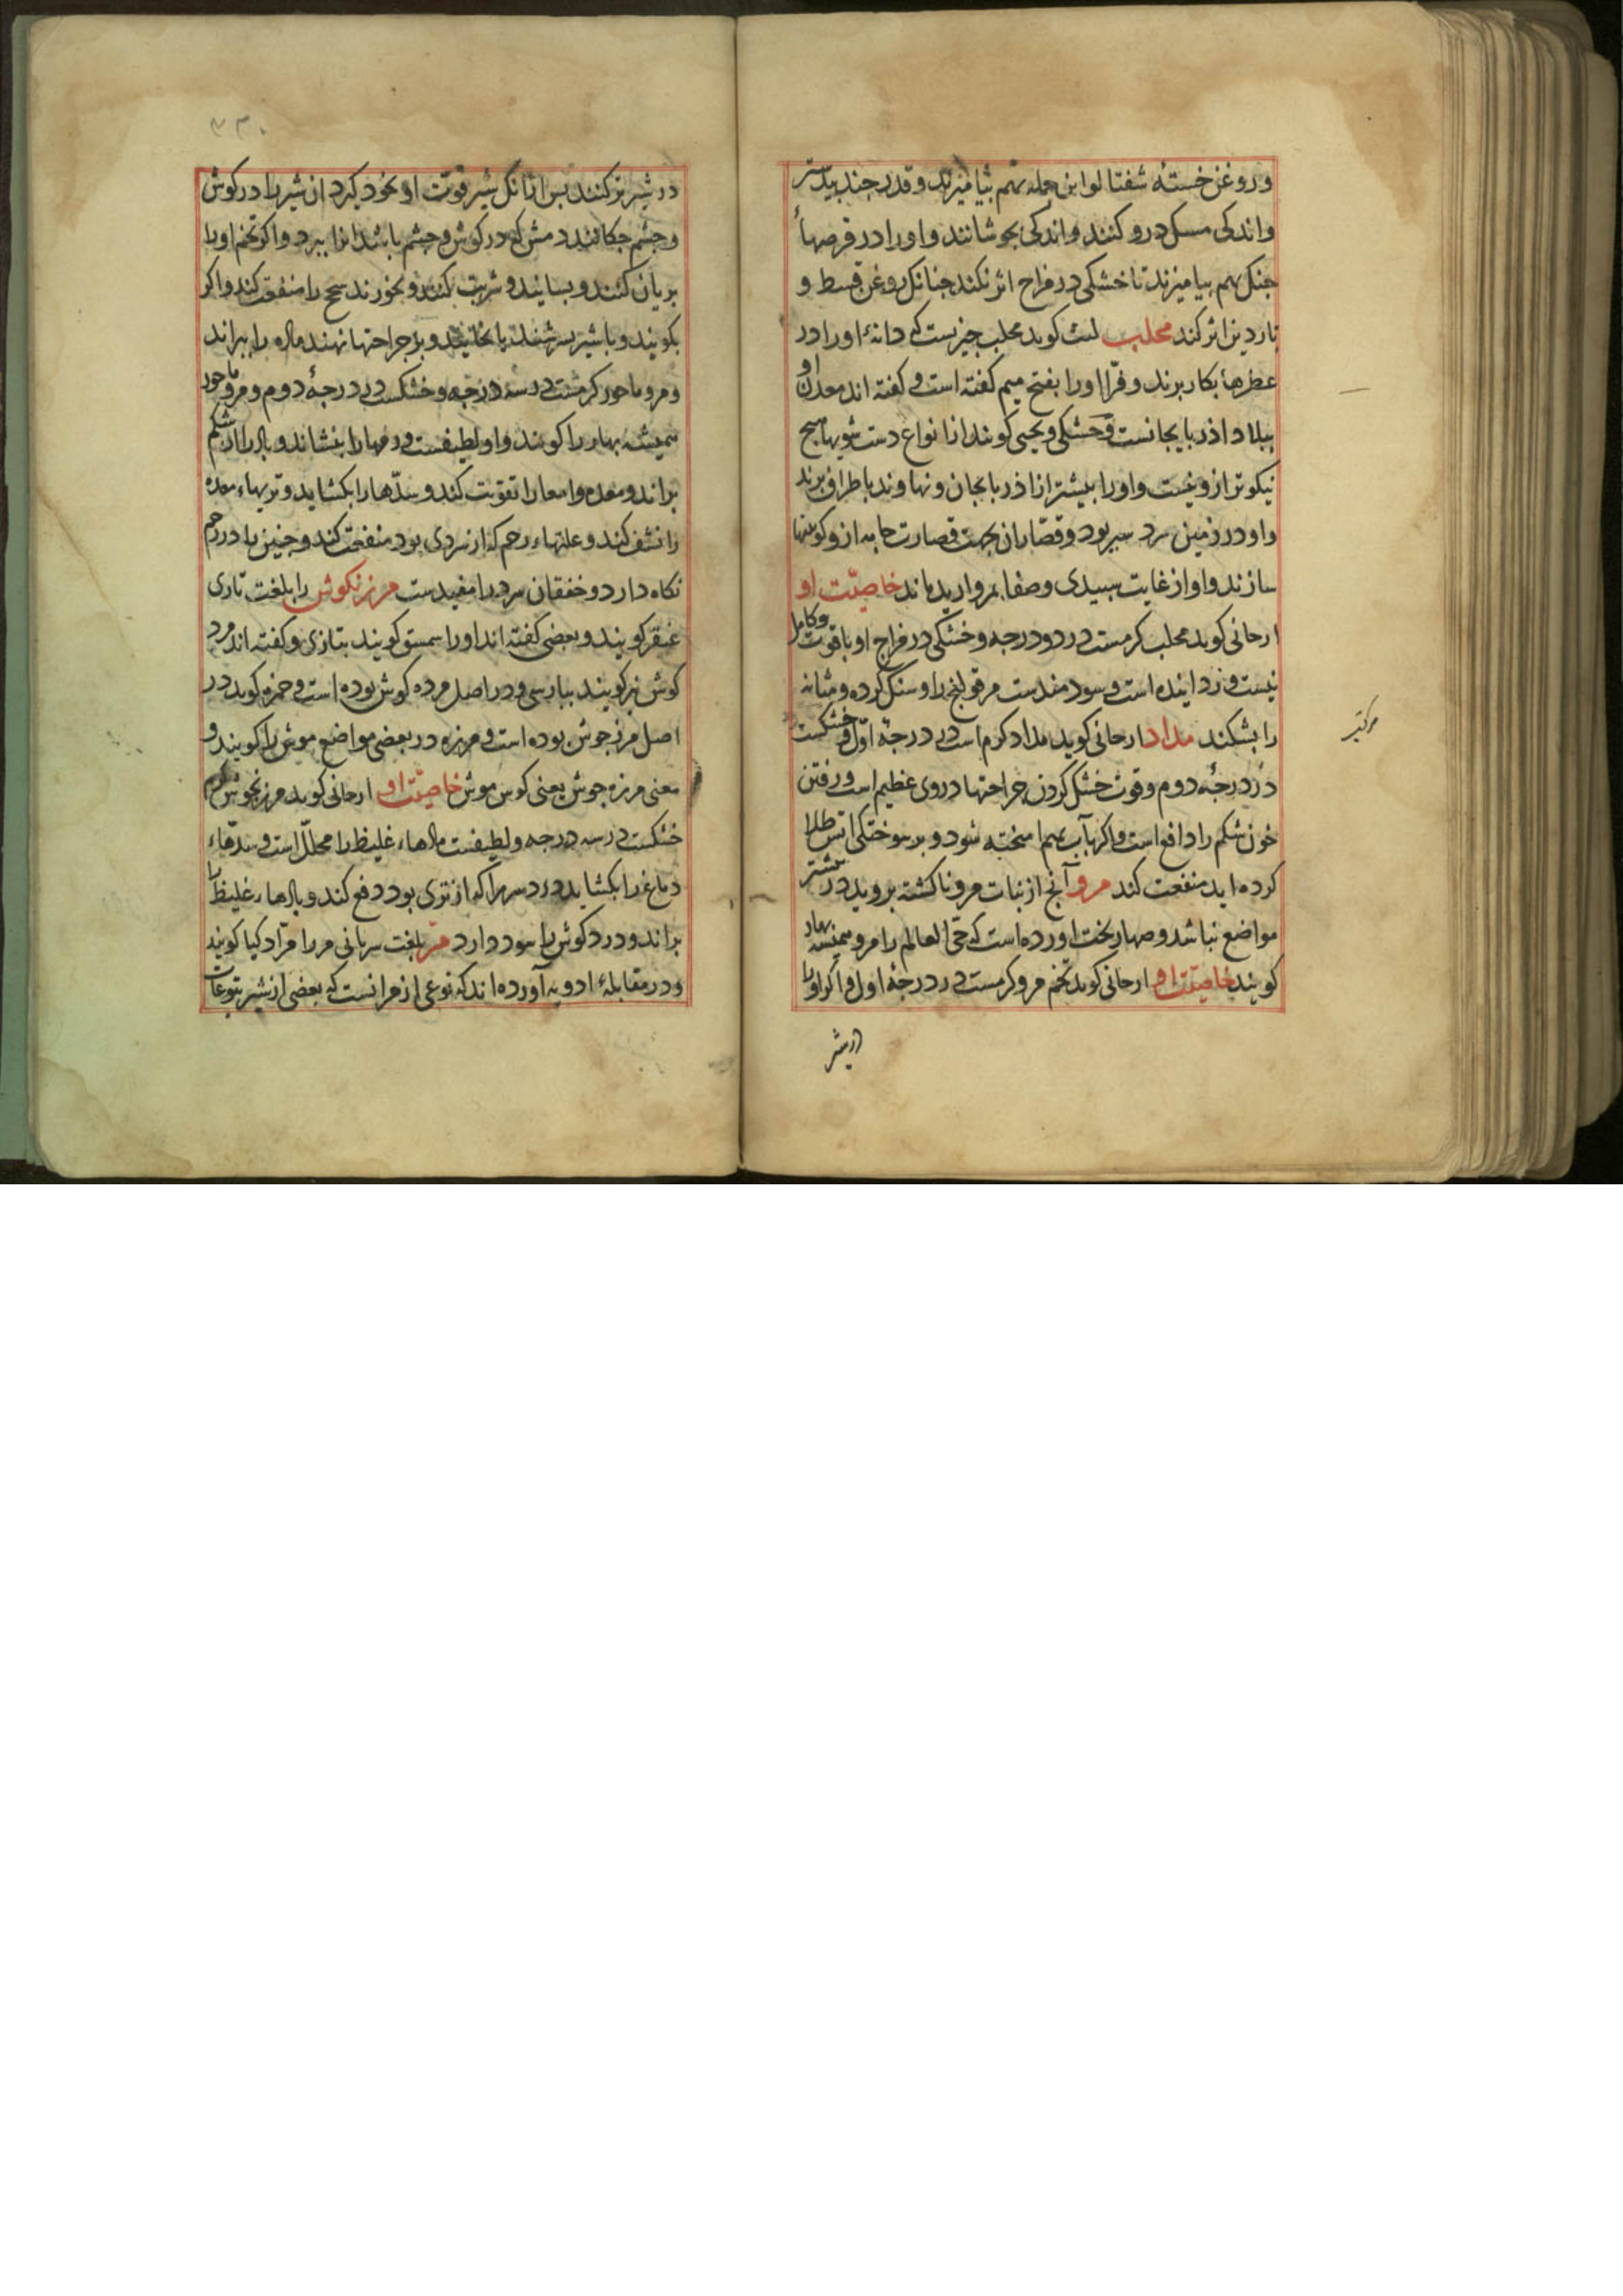 و روغن خستهٔ شفتالو این جمله بهم بیامیزند و قدر جند بیدستر
و اندکی مسک درو کنند و اندکی بجوشانند و اورا در قرصها
جنک بهم بیامیزند تا خشکی در مزاج اثر نکند جنانک روغن قسط و
ناردین اثر کند محلب لیث کوید محلب جیزیست که دانهٔ اورا در
عطرها بکار برند و فرّا اورا بفتح میم کفته است و کفته اند معدن او
ببلاد اذربایجانست و خشکی و یحیی کویند از انواع دست شویها هیچ
نیکوتر ازو نیست و اورا بیشتر از اذربایجان و نهاوند باطراف برند
و او در زمین سرد سیر بود و قصّاران بجهت قصارت جامه ازو کوبینها
سازند و او از غایت سپیدی و صفا بمروارید ماند خاصیّت او
ارجانی کوید محلب کرمست در دو درجه و خشکی در مزاج او با قوت و کامل
نیست و زداینده است و سودمندست مر قولنج را و سنک کرده و مثانه
را بشکند مداد ارجانی کوید مداد کرم است در درجهٔ اوّل و خشکست
در درجهٔ دوم و قوت خشک کردن جراحتها در وی عظیم است و رفتن
خون شکم را دافع است و اکر باب بهم امیخته شود و بر سوختکی اتش طلا
کرده اید منفعت کند مرو آنج از نبات مرو ناکشته بروید در بیشتر
مواضع نباشد و صهاربخت اورده است که حی العالم را مرو همیشه بهار
کویند خاصیّت او ارجانی کوید تخم مرو کرمست در درجهٔ اول و اکر اورا
در شیر
در شیر تر کنند بس ازانک شیر قوّت او بخود کیرد ان شیر را در کوش
و جشم جکانند دمش که در کوش و جشم باشد انرا ببرد و اکر تخم اورا
بریان کنند و بسایند و شربت کنند و بخورند سحج را منفعت کند و اکر
بکوبند و با شیر بسرشند یا بخایند و بر جراحتها نهند ماده را ببراند
و مرو ماحوز کرمست در سه درجه و خشکست در درجهٔ دوم و مرو ماحوز
همیشه بهار را کویند و او لطیفست ورمها را بنشاند و بادرا از شکم
براند و معده و امعا را تقویت کند و سدّها را بکشاید و تریهاء معده
را نشف کند و علتهاء رحم که از سردی بود منفعت کند و جنین را در رحم
نکاه دارد و خفقان سرد را مفیدست مرزنکوش را بلغت تازی
عنقر کویند و بعضی کفته اند اورا سمسق کویند بتازی و کفته اند مرد
کوش نیز کویند ببارسی و در اصل مرده کوش بوده است و حمزه کوید در
اصل مرزجوش بوده است و مرزه در بعضی مواضع موش را کویند و
معنی مرزه جوش یعنی کوش موش خاصیّت او ارجانی کوید مرزنجوش کرم
خشکست در سه درجه و لطیفست مادهاء غلیظ را محلّل است و سدّهاء
دماغ را بکشاید درد سر را که از تری بود دفع کند و بادهاء غلیظ را
براند و درد کوش را سود دارد مرّ بلغت سریانی مر را مرّاد کیا کویند
و در مقابلهٔ ادویه آورده اند که نوعی از مر انست که بعضی از شیر یتوعات